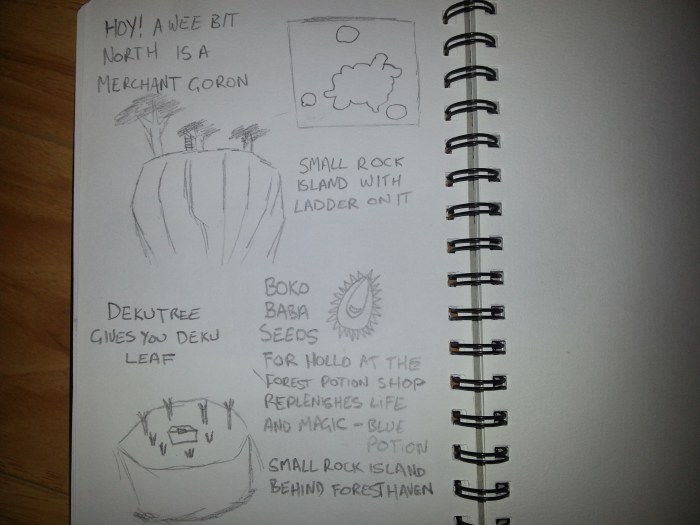 HOY! A WEE BIT
NORTH IS A
MERCHANT GORON
SMALL ROCK
ISLAND WITH
LADDER ON IT
DEKUTREE
GIVES YOU DEKU
LEAF
BOKO
BABA
SEEDS
FOR HOLLO AT THE
FOREST POTION SHOP
REPLENISHES LIFE
AND MAGIC - BLUE
POTION
SMALL ROCK ISLAND
BEHIND FOREST HAVEN